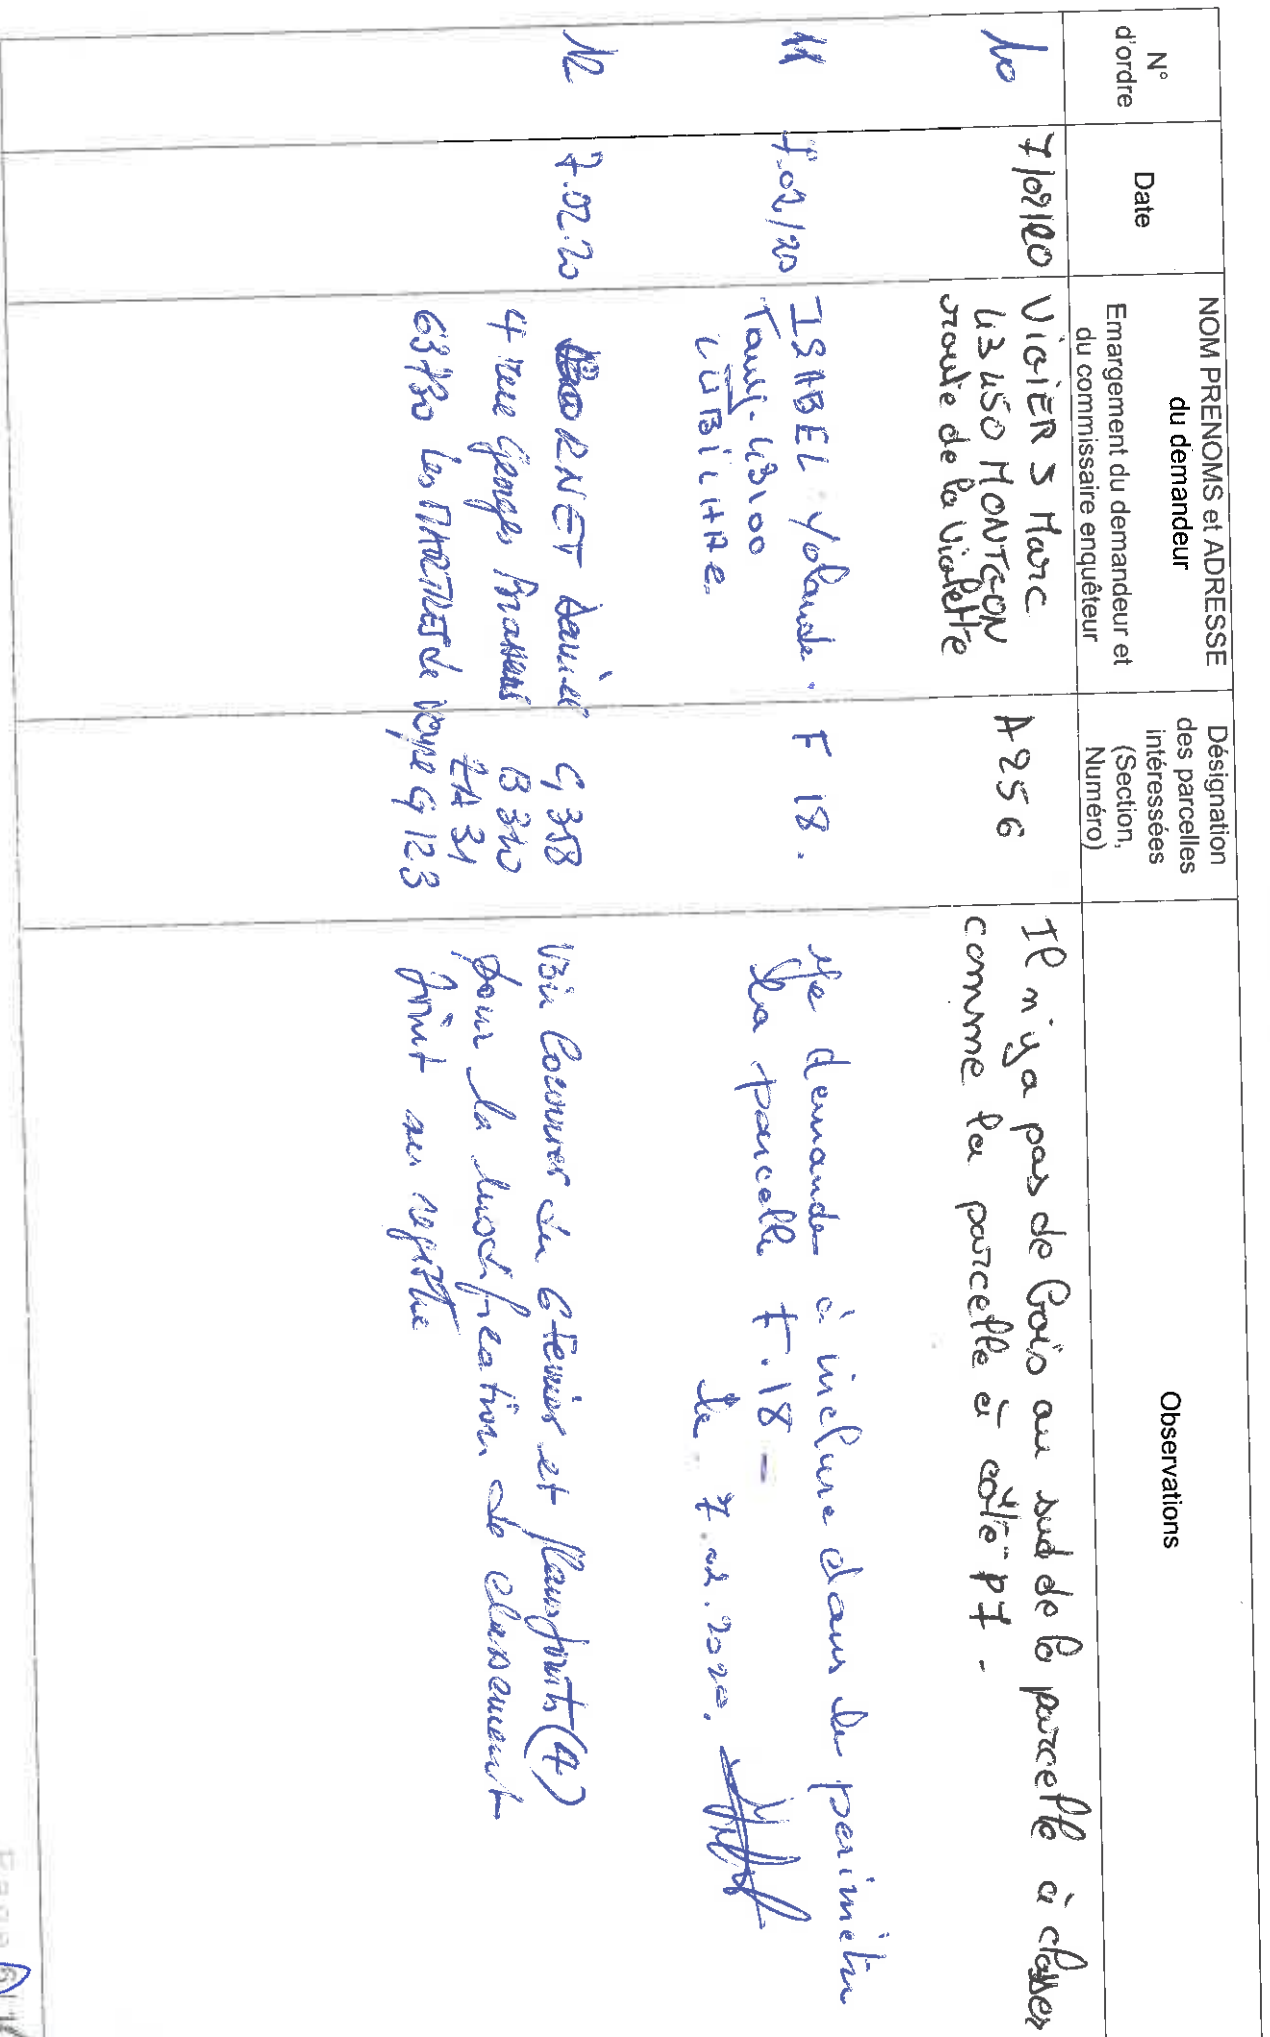 N°
d'ordre
Date
NOM PRENOMS et ADRESSE
du demandeur
Emargement du demandeur et
du commissaire enquêteur
Désignation
des parcelles
intéressées
(Section,
Numéro)
Observations
10
7/02/20
ViGiER S Marc
43450 MONTGON
route de la Violette
A 256
Il n'y a pas de bois au sud de la parcelle à classer
comme la parcelle à côté P7 -
11
7.02/20
ISABEL Yolande.
43100
F 18.
Je demande à inclure dans le périmètre
la parcelle F.18 -
le 7.02.2020.
12
7.02.20
RNET Daniel
4 rue Georges Brassens
63730 les MARTRES de Veyre
G 358
B 310
ZA 31
G 123
Voir Courrier du 6 février et plans joints (4)
pour la modification de classement
joint au registre
Page 6